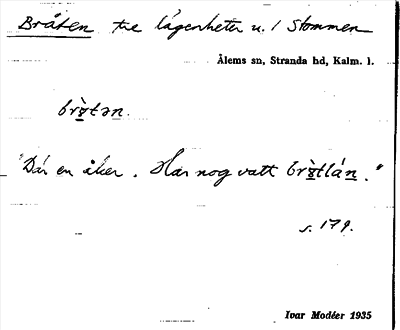 Bråten tre lägenheter u. 1 Stommen
Ålems sn, Stranda hd, Kalm. l.
brò̲tən.
"Där en åker. Har nog vatt brò̲tlán̲."
s. 179.
Ivar Modéer 1935